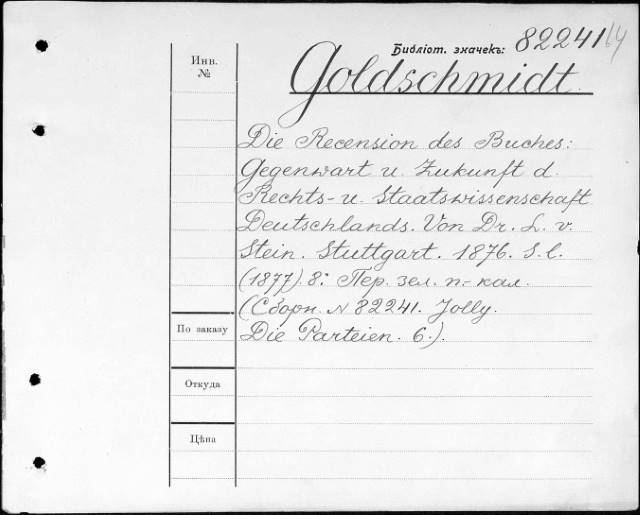 Библіот. значекъ: 82241/64
Инв.
№
Goldschmidt.
Die Recension des Buches:
Gegenwart u. Zukunft d.
Rechts- u. Staatswissenschaft
Deutschlands. Von Dr. L. v.
Stein. Stuttgart. 1876. S. l.
(1877). 8º. Пер. зел. п.-кал.
(Сборн. № 82241. Jolly.
По заказу
Die Parteien. 6.).
Откуда
Цѣна